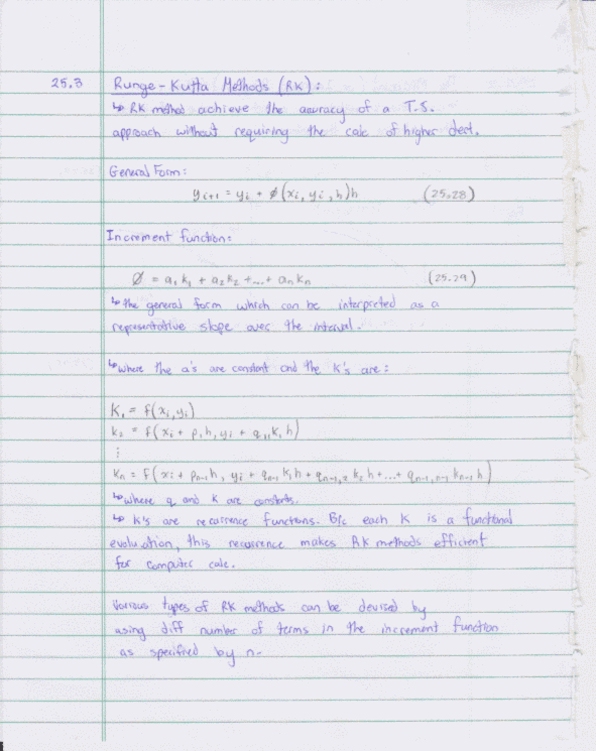 25.3 Runge-Kutta Methods (RK):
↳ RK method achieve the accuracy of a T.S.
approach without requiring the calc of higher derivt.
General Form:
yᵢ₊₁ = yᵢ + ∅(xᵢ, yᵢ, h)h (25.28)
Increment function:
∅ = a₁k₁ + a₂k₂ + ... + aₙkₙ (25.29)
↳ the general form which can be interpreted as a
representative slope over the interval.
↳ where the a's are constant and the k's are:
K₁ = f(xᵢ, yᵢ)
k₂ = f(xᵢ + p₁h, yᵢ + q₁₁k₁h)
⋮
kₙ = f(xᵢ + pₙ₋₁h, yᵢ + qₙ₋₁k₁h + qₙ₋₁,₂k₂h + ... + qₙ₋₁,ₙ₋₁kₙ₋₁h)
↳ where q and k are constants.
↳ K's are recurrence functions. B/c each K is a functional
evaluation, this recurrence makes RK methods efficient
for computer calc.
Various types of RK methods can be devised by
using diff number of terms in the increment function
as specified by n.